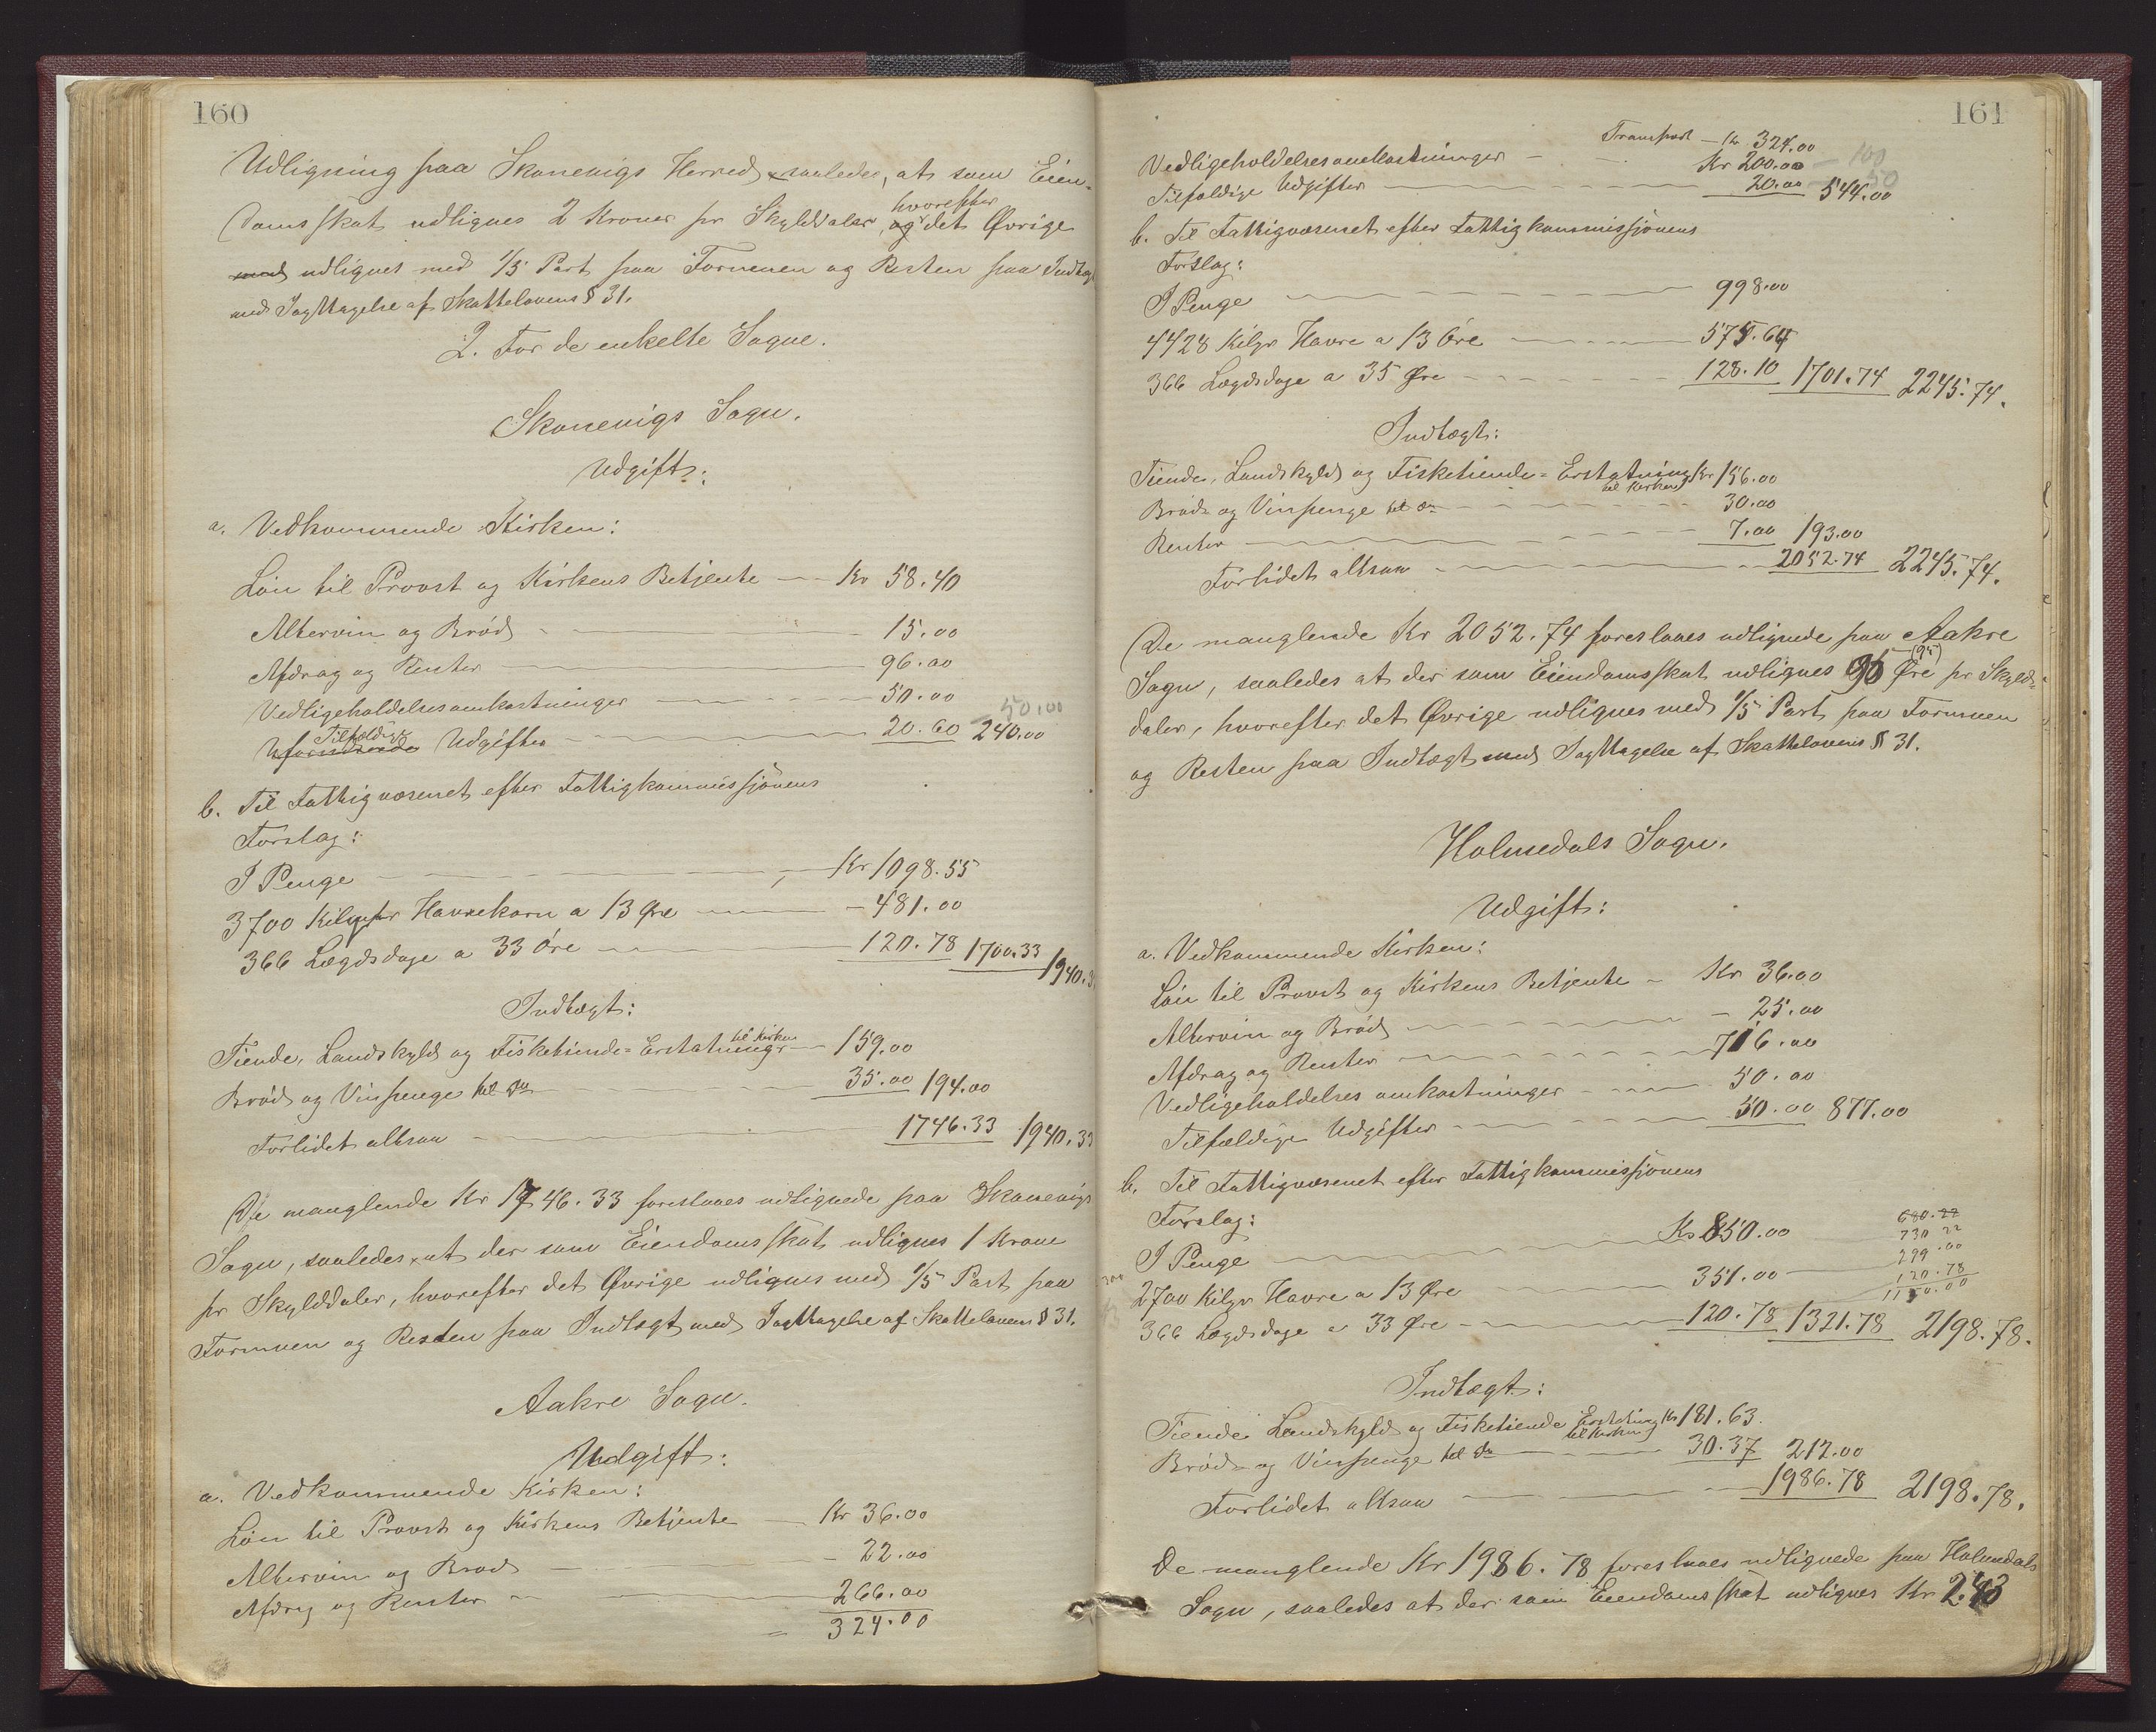 160
Udligning paa Skonevigs Herred saaledes, at som Eien-
domsskat udlignes 2 Kroner pr Skylddaler, og hvorefter det Øvrige
med udlignes med 1/5 Part paa Formuen og Resten paa Indtægt
med Iagttagelse af Skattelovens § 31.
2. For de enkelte Sogne.
Skonevigs Sogn.
Udgift:
a. Vedkommende Kirken:
Løn til Provst og Kirkens Betjente — Kr 58.40
Altervin og Brød — 15.00
Afdrag og Renter — 96.00
Vedligeholdelsesomkostninger — 50.00 50.00
Uforudseede Tilfældige Udgifter — 20.60 240.00
b. Til Fattigvæsenet efter Fattigkommissjonens
Forslag:
I Penge — Kr 1098.55
3700 Kilogr Havrekorn a 13 Øre — 481.00
366 Lægdsdage a 33 Øre — 120.78 1700.33 1940.3
Indtægt:
Tiende, Landskyld og Fisketiende-Erstatninger til Kirken — 159.00
Brød og Vinpenge til Do — 35.00 194.00
Forlidet altsaa — 1746.33 1940.33
De manglende Kr 1746.33 foreslaaes udlignede paa Skonevigs
Sogn, saaledes at der som Eiendomsskat udlignes 1 Krone
pr Skylddaler, hvorefter det Øvrige udlignes med 1/5 Part paa
Formuen og Resten paa Indtægt med Iagttagelse af Skattelovens § 31.
Aakre Sogn.
Udgift:
a. Vedkommende Kirken:
Løn til Provst og Kirkens Betjente — Kr 36.00
Altervin og Brød — 22.00
Afdrag og Renter — 266.00
= 324.00
161
Transport — Kr 324.00
Vedligeholdelsesomkostninger — Kr 200.00 — 100
Tilfældige Udgifter — 20.00 544.00 50
b. Til Fattigvæsenet efter Fattigkommissjonens
Forslag:
I Penge — 998.00
4428 Kilgr Havre a 13 Øre — 575.64
366 Lægdsdage a 35 Øre — 128.10 1701.74 2245.74.
Indtægt:
Tiende, Landskyld og Fisketiende-Erstatning til Kirken Kr 156.00
Brød og Vinpenge til Do — 30.00
Renter — 7.00 193.00
Forlidet altsaa — 2052.74 2245.74.
De manglende Kr 2052.74 foreslaaes udlignede paa Aakre
Sogn, saaledes at der som Eiendomsskat udlignes 95 (95) Øre pr Skyld-
daler, hvorefter det Øvrige udlignes med 1/5 Part paa Formuen
og Resten paa Indtægt med Iagttagelse af Skattelovens § 31.
Holmedals Sogn.
Udgift:
a. Vedkommende Kirken:
Løn til Provst og Kirkens Betjente — Kr 36.00
Altervin og Brød — 25.00
Afdrag og Renter — 716.00
Vedligeholdelses omkostninger — 50.00
Tilfældige Udgifter — 50.00 877.00
b. Til Fattigvæsenet efter Fattigkommissjonens
Forslag: 680.22
I Penge — Kr 850.00 730 22
2700 Kilgr Havre a 13 Øre — 351.00 — 299.00
120.78
1150.00
366 Lægdsdage a 33 Øre — 120.78 1321.78 2198.78.
Indtægt:
Tiende Landskyld og Fisketiende Erstatning til Kirken Kr 181.63
Brød og Vinpenge til Do — 30.37 212.00
Forlidet altsaa — 1986.78 2198.78.
De manglende Kr 1986.78 foreslaaes udlignede paa Holmedals
Sogn, saaledes at der som Eiendomsskat udlignes Kr 2.43